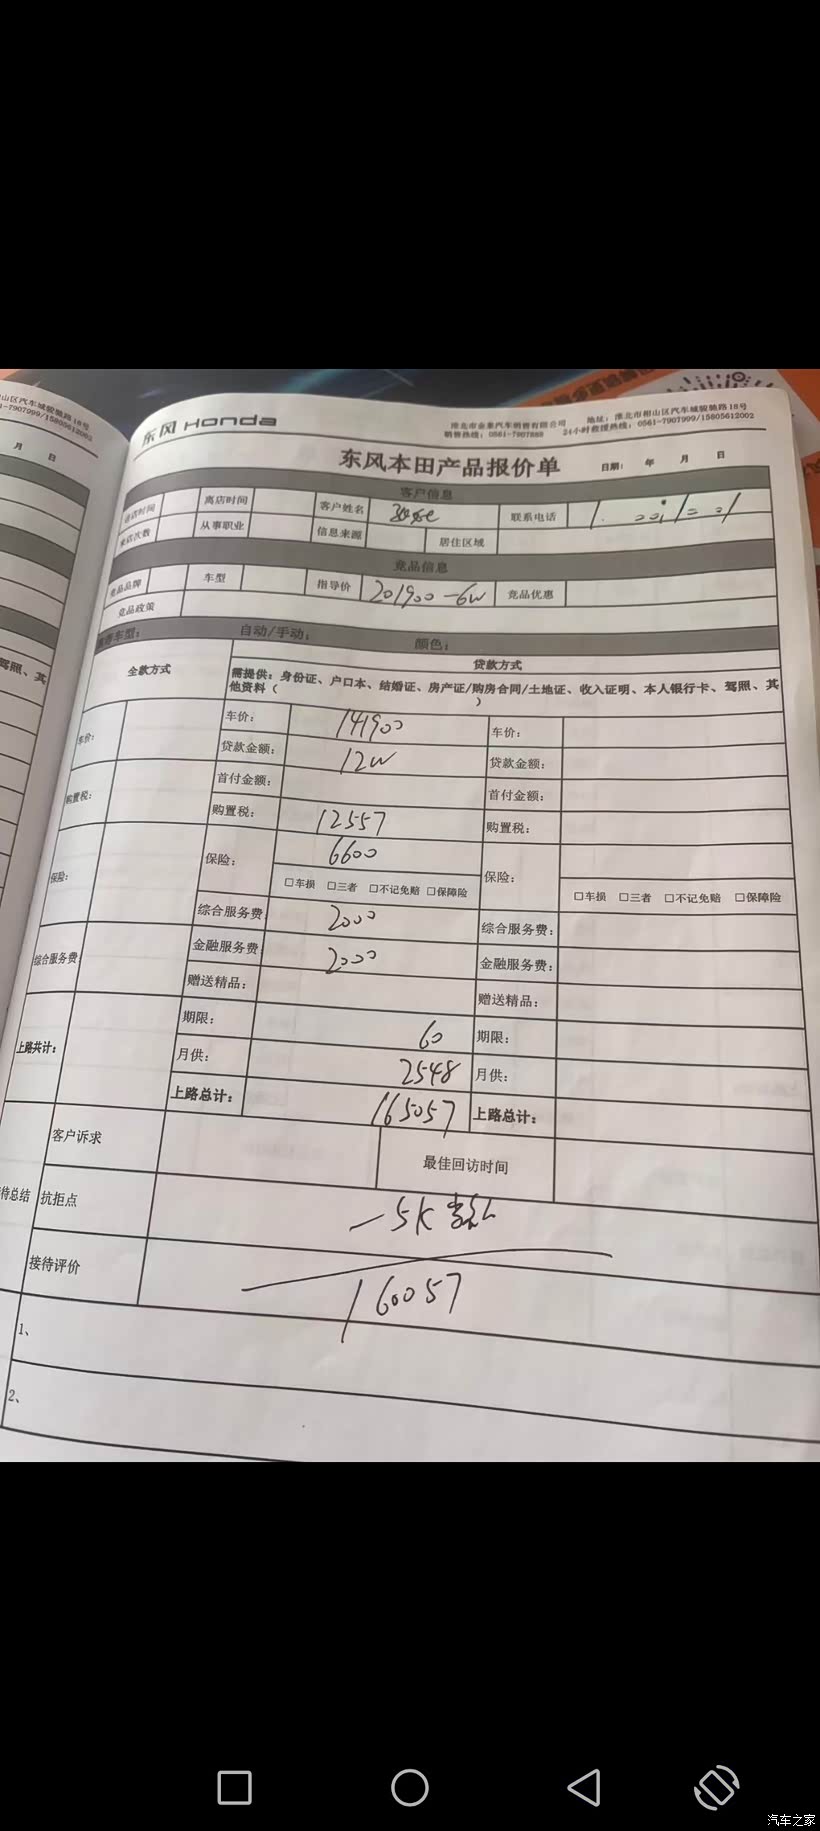 山区汽车城骏驰路18号
1-7907999/15805612002
月 日
驾照、其
东风 Honda
淮北市金泰汽车销售有限公司 地址：淮北市相山区汽车城骏驰路18号
销售热线：0561-7907888 24小时救援热线：0561-7907999/15805612002
东风本田产品报价单
日期： 年 月 日
客户信息
进店时间 离店时间 客户姓名 联系电话
来店次数 从事职业 信息来源 居住区域
竞品信息
竞品品牌 车型 指导价 201900-6W 竞品优惠
竞品政策
推荐车型： 自动/手动： 颜色：
全款方式 贷款方式
需提供：身份证、户口本、结婚证、房产证/购房合同/土地证、收入证明、本人银行卡、驾照、其
他资料（ ）
车价： 车价： 141900 车价：
贷款金额： 12W 贷款金额：
购置税： 首付金额： 首付金额：
购置税： 12557 购置税：
保险： 保险： 6600 保险：
□车损 □三者 □不记免赔 □保障险 □车损 □三者 □不记免赔 □保障险
综合服务费 2000 综合服务费：
综合服务费： 金融服务费 2000 金融服务费：
赠送精品： 赠送精品：
上路共计： 期限： 60 期限：
月供： 2548 月供：
上路总计： 165057 上路总计：
客户诉求 最佳回访时间
待总结 抗拒点 -5K
接待评价 160057
1、
2、
汽车之家